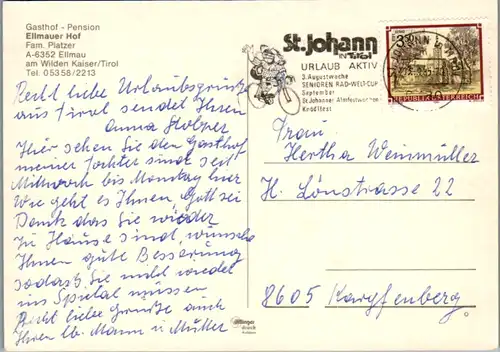 Gasthof - Pension
Ellmauer Hof
Fam. Platzer
A-6352 Ellmau
am Wilden Kaiser/Tirol
Tel. 05358/2213
St. Johann
IN TIROL
URLAUB AKTIV
3. Augustwoche
SENIOREN RAD-WELT-CUP
September
St. Johanner Almfestwochen
Knödlfest
REPUBLIK ÖSTERREICH
Recht liebe Urlaubsgrüsse
aus Tirol sendet Ihnen
Anna
Hier sehen Sie den Gasthof
meiner Tochter sind seit
Mittwoch bis Montag hier
Wie geht es Ihnen, Gott sei
Dank das Sie wieder
zu Hause sind, wünsche
Ihnen gute Besserung
sodass Sie nicht wieder
ins Spital müssen
Recht liebe Grüsse auch
Ihren lb. Mann u Mutter
Frau
Hertha Weinmüller
H. Lönsstrasse 22
8605 Kapfenberg